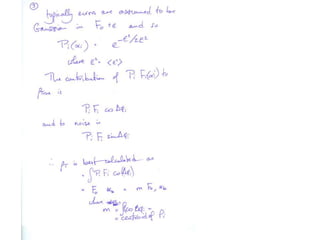 ③
typically errors are assumed to be
Gaussian in F₀ + e and so
Pᵢ(xᵢ) = e^-ε²/2E²
where E² = <ε²>
The contribution of Pᵢ Fᵢ(xᵢ) to
is
Pᵢ Fᵢ cos Δφᵢ
and to noise is
Pᵢ Fᵢ sin Δφᵢ
∴ is best calculated as
= ∫Pᵢ Fᵢ cos(Δφᵢ)
= F₀ = m F₀,
where
m = =
= centroid of Pᵢ